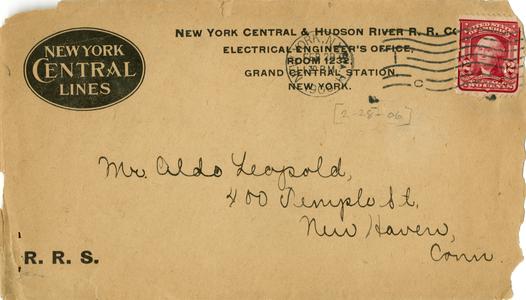 NEW YORK CENTRAL & HUDSON RIVER R. R. CO
ELECTRICAL ENGINEER'S OFFICE,
ROOM 1232,
GRAND CENTRAL STATION,
NEW YORK.
NEW YORK
CENTRAL
LINES
UNITED STATES
OF AMERICA
2 2
TWO CENTS
[2-28-06]
Mr. Aldo Leopold,
400 Temple St.
New Haven,
Conn.
R. R. S.